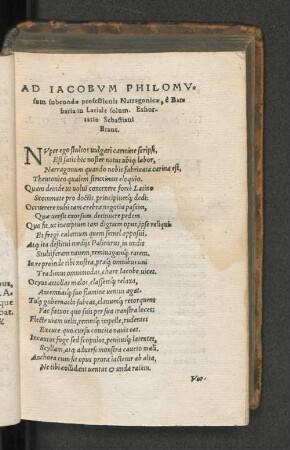 AD IACOBVM PHILOMV-
sum subeundæ profectionis Narragonicæ, è Bar
baria in Latiale solum. Exhor-
tatio Sebastiani
Brant.
NVper ego stultos vulgari carmine scripsi,
Est satis hic noster notus ubiq; labor,
Narragonum quando nobis fabricata carina est,
Theutonico qualem struximus eloquio.
Quam deinde ut volui convertere forte Latino
Stemmate pro doctis, principiumq; dedi:
Occurrere mihi tam crebra negotia passim,
Quæ uersit exorsum detinuere pedem.
Quo fit, ut inceptum tam dignum opus, ipse reliqui
Et fregi calamum quem semel apposui.
Atq; ita destitui medijs Palinurus, in undis
Stultiferam nauem, remiuagamq; ratem,
In reprimendo tibi nostra, præq; omnibus uni
Tradimus omnimodas, chare Iacobe uices.
Oryas attollar malos, classemq; relaxa,
Auenimulq; suo flamine uentus agat.
Tuq; gubernaclo subeas, clauumq; retorquens
Fac fatuos quo suis per sua monstra locet:
Flecte uiam uelis, remosq; impelle, rudentes
Excute, quo cursu concita nauis eat.
Incautos fuge sed scopulos, penitusq; latentes,
Scyllam, atq; aduersi monstra caueto mali.
Anchora cum sit opus prora iactetur ab alta,
Ne tibi collidant uentus & unda ratem.
Vor-
A.
que
bat.